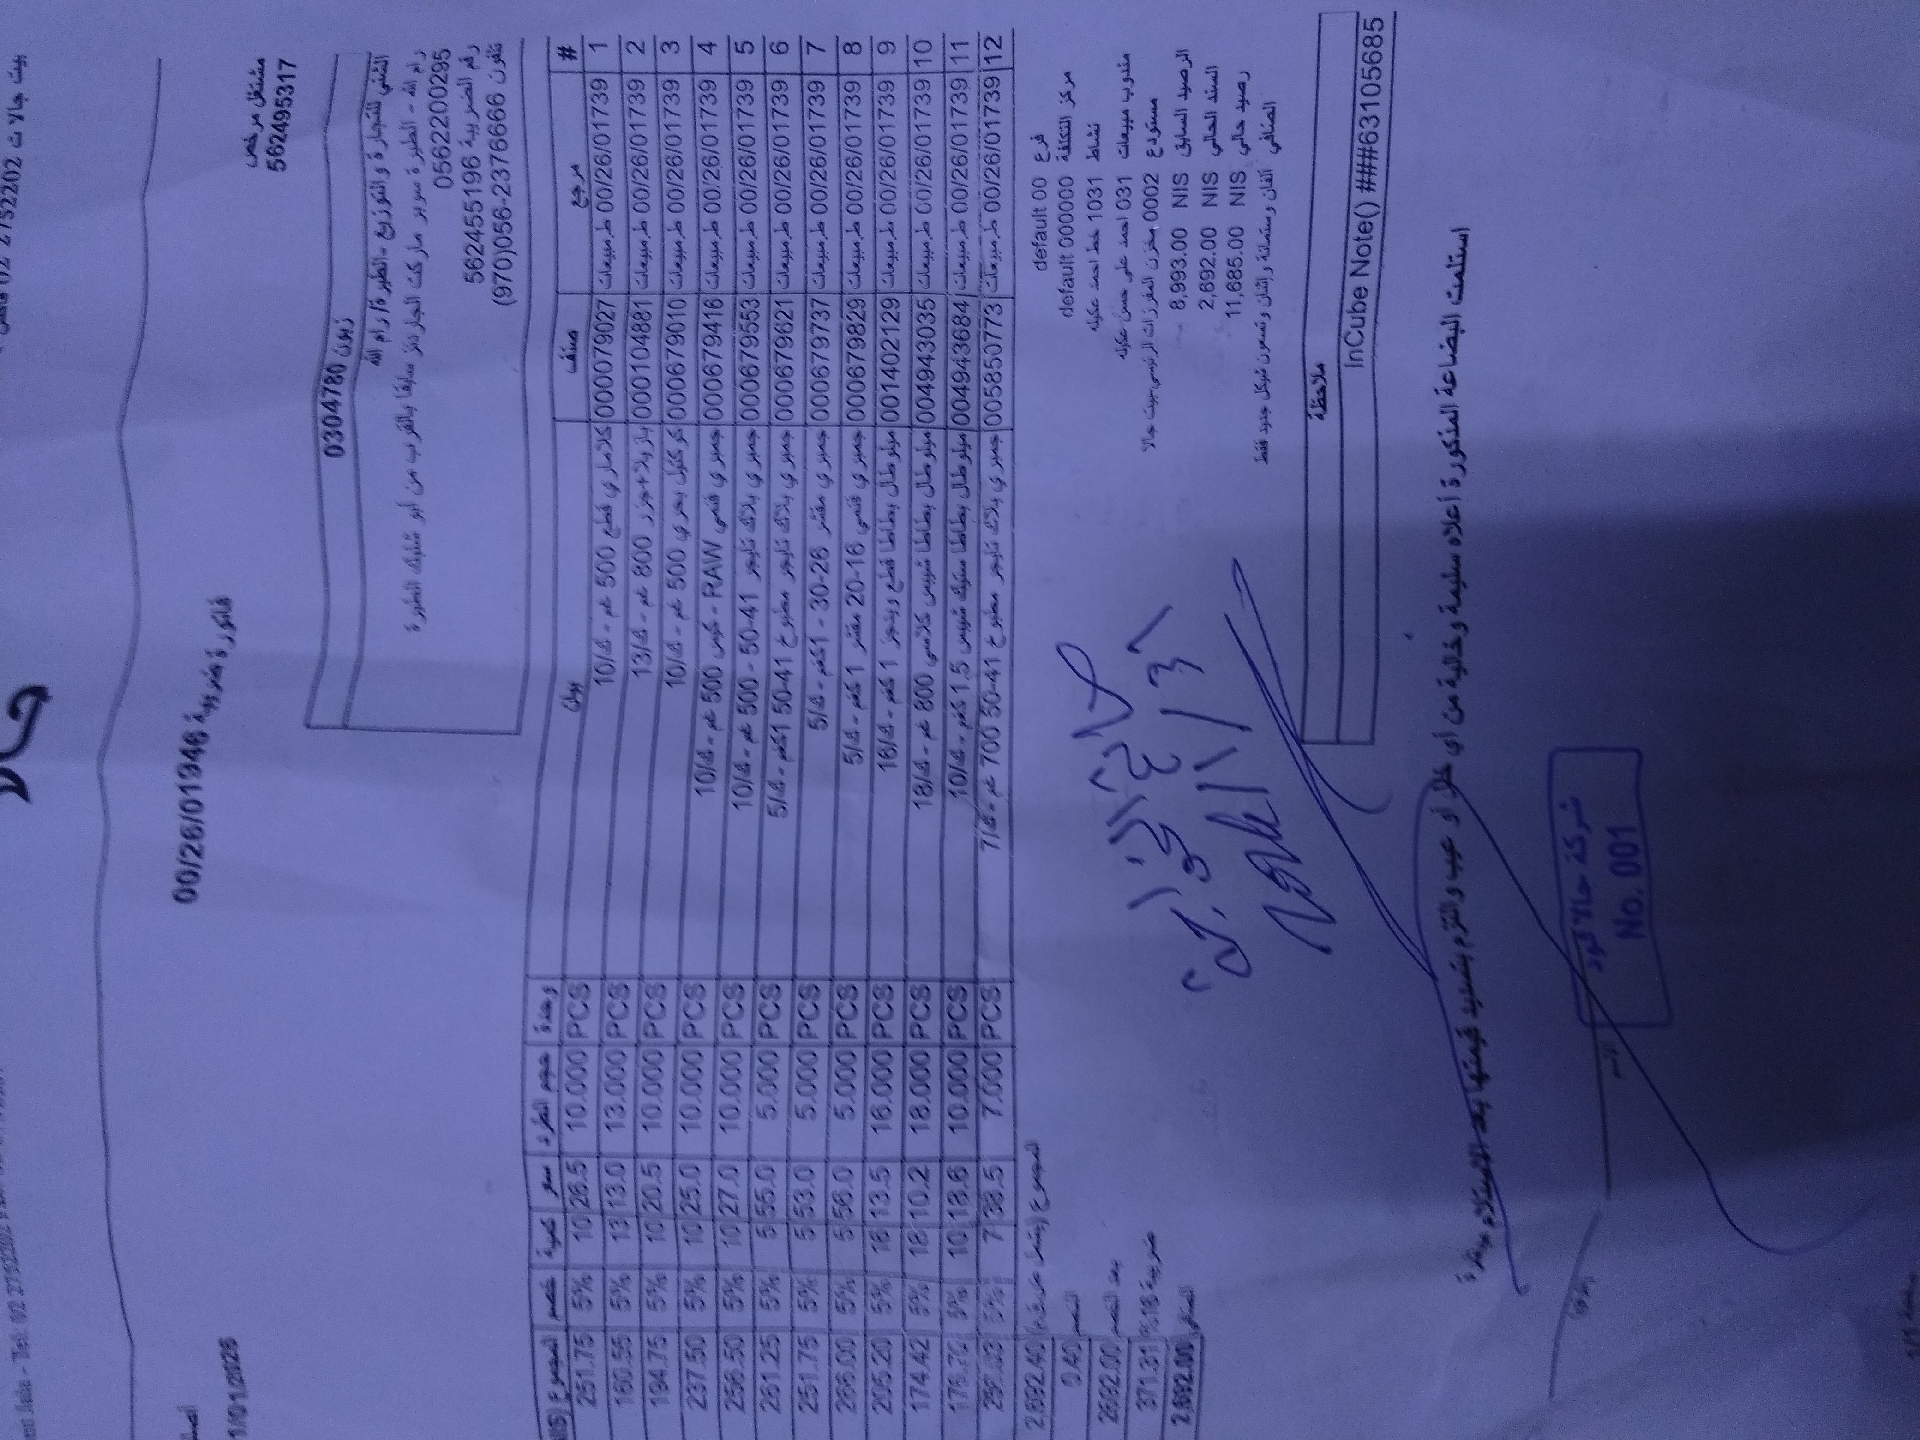 مشتغل مرخص
562495317
فاتورة ضريبية 00/26/01946
زبون 0304780
الشني للتجارة والتوزيع -الطيرة/ رام الله
رام الله - الطيرة سوبر ماركت الجاردنز سابقا بالقرب من ابو شلبك الطيرة
0562200295
رقم الضريبة 562455196
تلفون 2376666-056(970)
# مرجع صنف بيان وحدة حجم الطرد سعر كمية خصم المجموع (NIS)
1 ط.مبيعات 00/26/01739 000079027 كلاماري قطع 500 غم - ك/10 PCS 10.000 26.5 10 5% 251.75
2 ط.مبيعات 00/26/01739 000104881 بازيلا+جزر 800 غم - ك/13 PCS 13.000 13.0 13 5% 160.55
3 ط.مبيعات 00/26/01739 000679010 كوكتيل بحري 500 غم - ك/10 PCS 10.000 20.5 10 5% 194.75
4 ط.مبيعات 00/26/01739 000679416 جمبري فنمي RAW - كيس 500 غم - ك/10 PCS 10.000 25.0 10 5% 237.50
5 ط.مبيعات 00/26/01739 000679553 جمبري بلاك تايجر 41-50 - 500 غم - ك/10 PCS 10.000 27.0 10 5% 256.50
6 ط.مبيعات 00/26/01739 000679621 جمبري بلاك تايجر مطبوخ 41-50 1كغم - ك/5 PCS 5.000 55.0 5 5% 261.25
7 ط.مبيعات 00/26/01739 000679737 جمبري مقشر 26-30 - 1كغم - ك/5 PCS 5.000 53.0 5 5% 251.75
8 ط.مبيعات 00/26/01739 000679829 جمبري فنمي 16-20 مقشر 1 كغم - ك/5 PCS 5.000 56.0 5 5% 266.00
9 ط.مبيعات 00/26/01739 001402129 ميلوطال بطاطا قطع ويدجز 1 كغم - ك/16 PCS 16.000 13.5 16 5% 205.20
10 ط.مبيعات 00/26/01739 004943035 ميلوطال بطاطا شيبس كلاسي 800 غم - ك/18 PCS 18.000 10.2 18 5% 174.42
11 ط.مبيعات 00/26/01739 004943684 ميلوطال بطاطا ستيك شيبس 1.5 كغم - ك/10 PCS 10.000 18.6 10 5%
12 ط.مبيعات 00/26/01739 005850773 جمبري بلاك تايجر مطبوخ 41-50 700 غم - ك/7 PCS 7.000 38.5 7 5%
فرع 00 default
مركز التكلفة 000000 default
نشاط 1031 خط احمد عكيله
مندوب مبيعات 031 احمد علي حسن عكيله
مستودع 0002 مخزن المفرزات الرئيسي-بيت جالا
الرصيد السابق NIS 8,993.00
السند الحالي NIS 2,692.00
رصيد حالي NIS 11,685.00
الصافي الفان وستمائة وإثنان وتسعون شيكل جديد فقط
المجموع 2,692.40
الخصم 0.40
بعد الخصم 2692.00
ضريبة 18%
الصافي 2,692.00
ملاحظة
InCube Note() ###63105685
استلمت البضاعة المذكورة أعلاه سليمة وخالية من أي خلل أو عيب والتزم بتسديد قيمتها
شركة حالا فود
No. 001